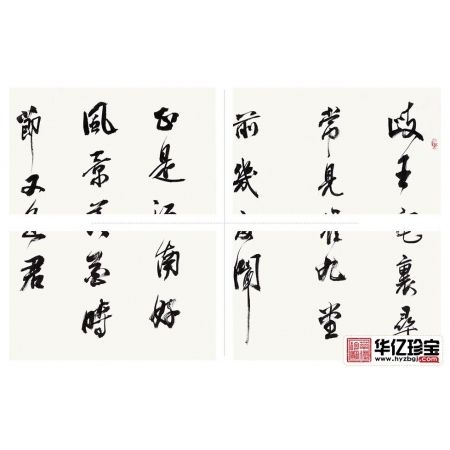 歧王宅裏尋
常見崔九堂
前幾度聞
正是江南好
風景落花時
節又逢君
华亿珍宝
www.hyzbgj.com